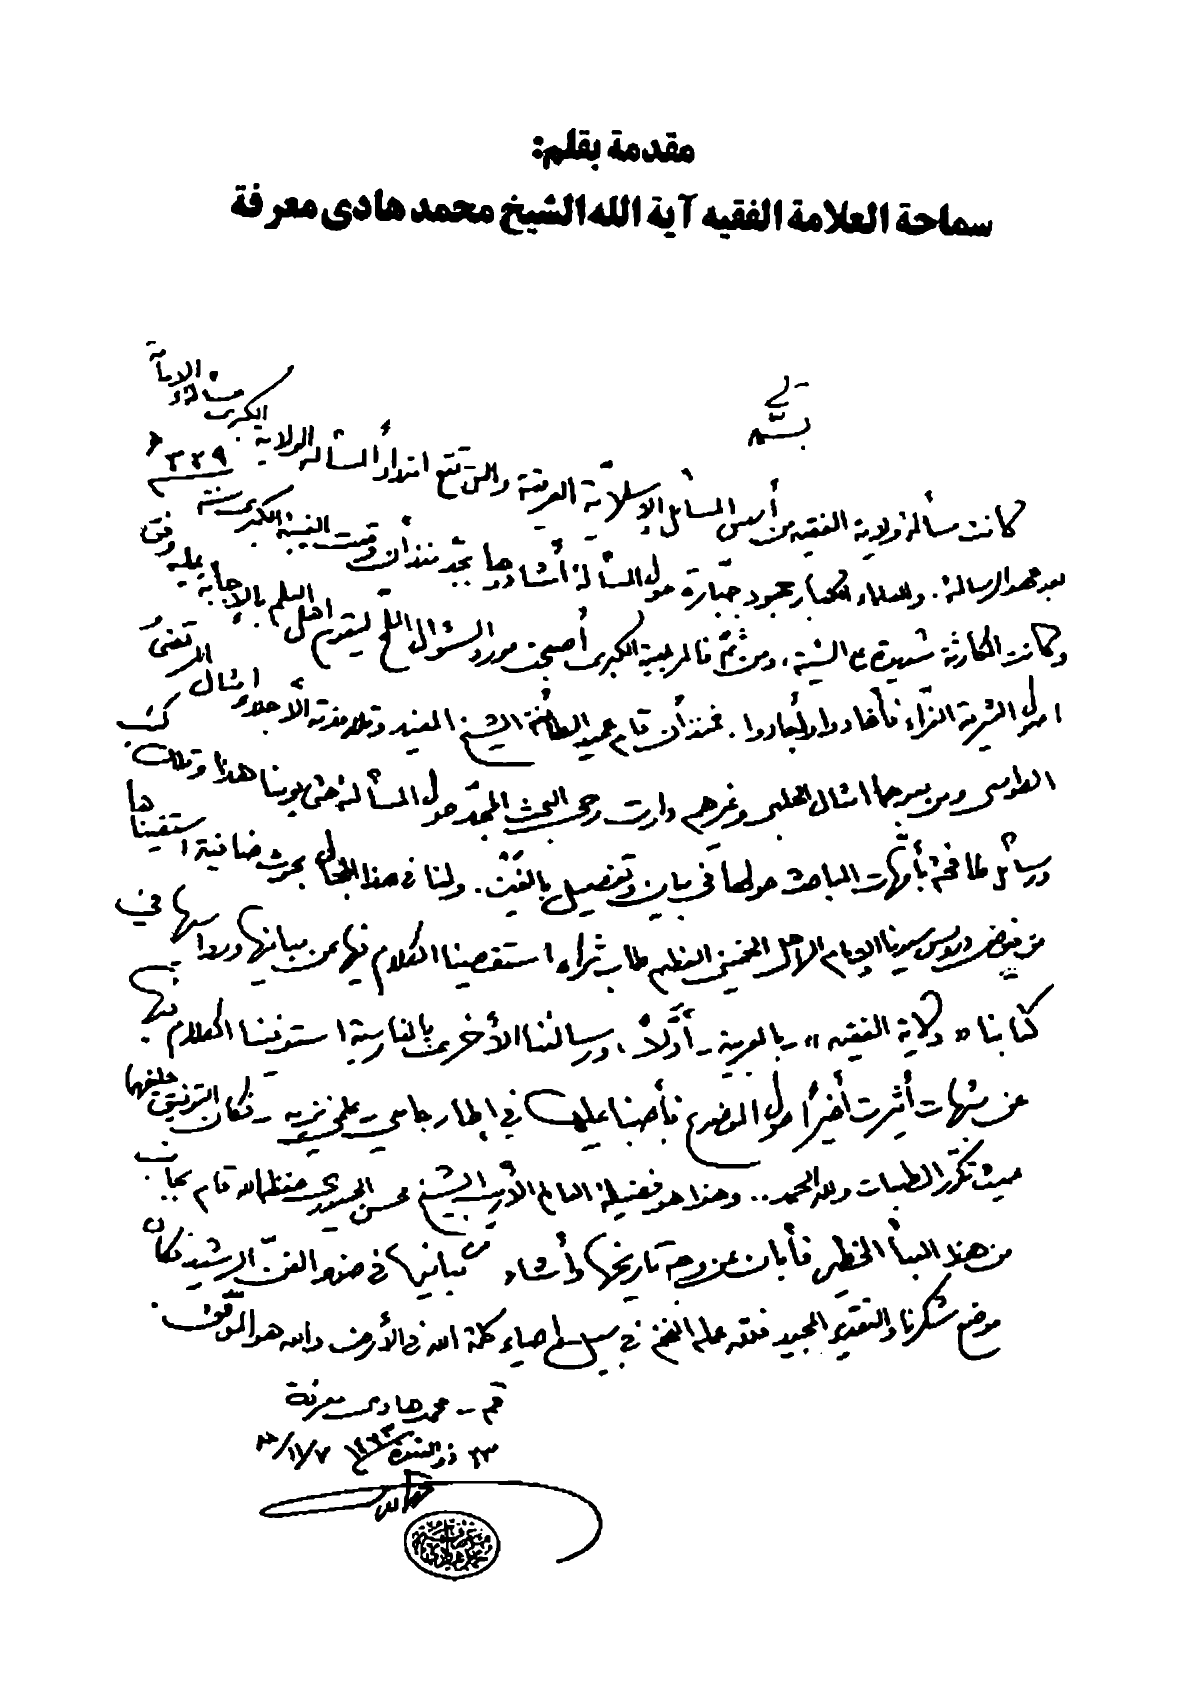 مقدمة بقلم:
سماحة العلامة الفقيه آية الله الشيخ محمد هادى معرفة
بسمه تعالى
كانت مسألة ولاية الفقيه من أسس المسائل الإسلاميّة العريقة والتي تقع امتداداً لمسألة الولاية الكبرى مسألة الإمامة
بعد عهد الرسالة. وللعلماء الكبار جهود جبّارة حول المسألة أشادوها بجدّ منذ أن وقعت الغيبة الكبرى سنة ٣٢٩ ه
وكانت الكارثة شديدة على الشيعة، ومن ثمّ فالمرجعية الكبرى أصبحت مورد السؤال الملحّ ليقوم اهل العلم بالإجابة عليه وفق
اصول الشريعة الغرّاء فأفادوا وأجادوا. فمنذ أن قام عميد الطائفة الشيخ المفيد وتلامذته الأجلاء امثال المرتضى
الطوسى ومن بعدهما امثال الحلبى وغيرهم دارت رحى البحث المجدّ حول المسألة حتى يومنا هذا وتلك كتب
ورسائل طافحة بأمّهات المباحث حولها فى بيان وتفصيل بالغين. ولنا فى هذا المجال بحوث ضافية استقيناها
من فيض دروس سيدنا الإمام الراحل الخميني العظيم طاب ثراه استقصينا الكلام فيها عن مبانيها ودراستها في
كتابنا «ولاية الفقيه» - بالعربية - أوّلاً، ورسالتنا الأخرى بالفارسية استوفينا الكلام فيها
عن شبهات أثيرت أخيراً حول الموضوع فأجبنا عليها في إطار جامعي - علمي نزيه - فكان التوفيق حليفها
حيث تكرّر الطبعات ولله الحمد.. وهذا هو فضيلة العالم الأريب الشيخ محسن الحيدري حفظه الله قام بجانب
من هذا العبأ الخطير فأبان عن وجه تاريخها وأشاد من مبانيها في ضوء الفنّ الرشيد فكان
موضع شكرنا والتقدير المجيد فلله عمله الفخم في سبيل إحياء كلمة الله في الأرض والله هو الموفّق.
قم - محمد هادى معرفة
٢٣ ذو القعدة ١٤٢٣